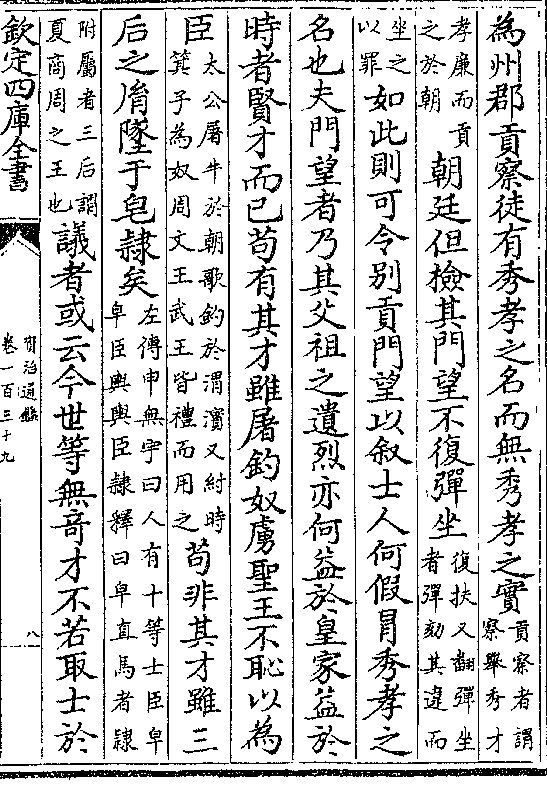 為州郡貢察徒有秀孝之名而無秀孝之實貢察者謂察舉秀才
孝廉而貢之於朝朝廷但檢其門望不復彈坐復扶又翻彈坐者彈劾其違而
坐之以罪如此則可令別貢門望以叙士人何假冒秀孝之
名也夫門望者乃其父祖之遺烈亦何益於皇家益於
時者賢才而已苟有其才雖屠釣奴虜聖王不恥以為
臣太公屠牛於朝歌釣於渭濱又紂時箕子為奴周文王武王皆禮而用之苟非其才雖三
后之胤墜于皂隸矣左傳申無宇曰人有十等士臣皁皁臣輿輿臣隸釋曰皁直馬者隸
附屬者三后謂夏商周之王也議者或云今世等無奇才不若取士於
欽定四庫全書
資治通鑑
卷一百三十九
八